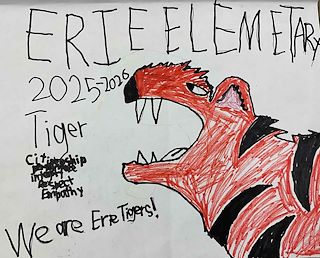 ERIE ELEMETARY
2025-2026
Tiger
Citizenship
integrity
Respect
Empathy
We are Erie Tigers!